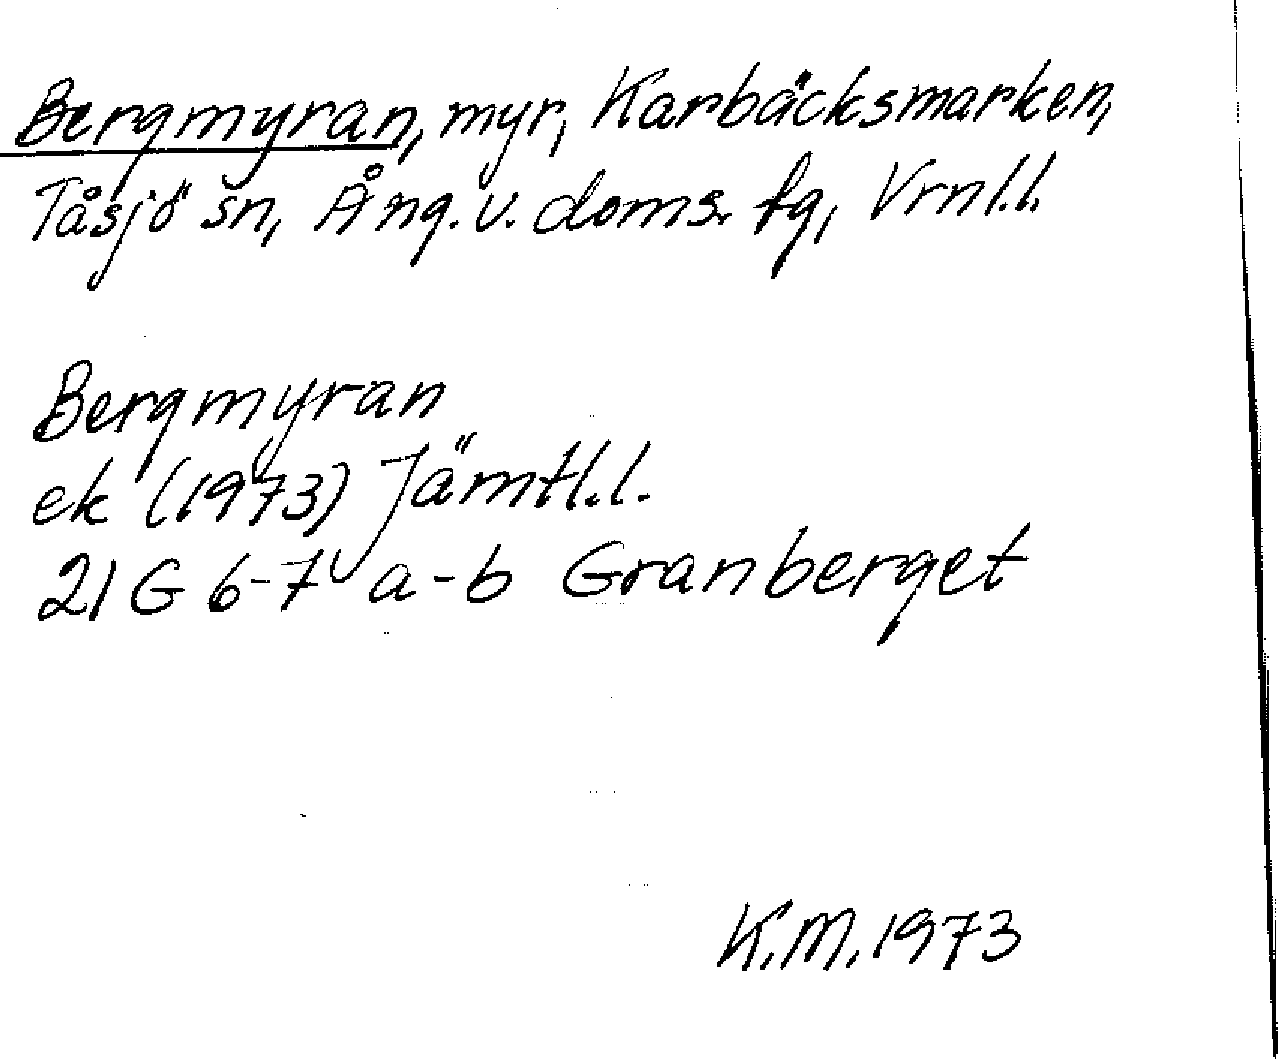 Bergmyran, myr, Karbäcksmarken,
Tåsjö sn, Ång. v. doms. fg, Vrnl.l.
Bergmyran
ek (1973) Jämtl.l.
21 G 6-7 a-b Granberget
K.M. 1973